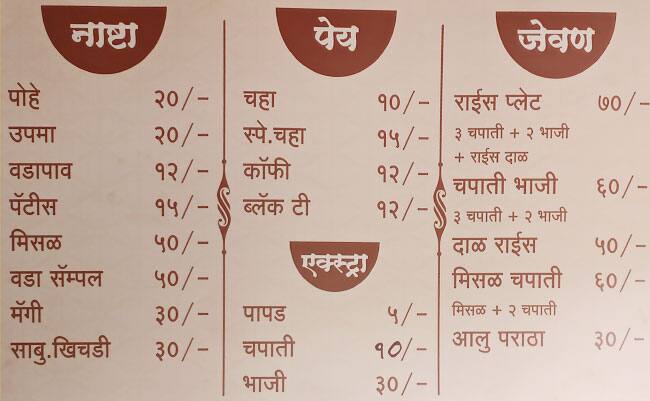 नाष्टा
पोहे २०/-
उपमा २०/-
वडापाव १२/-
पॅटीस १५/-
मिसळ ५०/-
वडा सॅम्पल ५०/-
मॅगी ३०/-
साबु.खिचडी ३०/-
पेय
चहा १०/-
स्पे.चहा १५/-
कॉफी १२/-
ब्लॅक टी १२/-
एक्स्ट्रा
पापड ५/-
चपाती १०/-
भाजी ३०/-
जेवण
राईस प्लेट ७०/-
३ चपाती + २ भाजी
+ राईस दाळ
चपाती भाजी ६०/-
३ चपाती + २ भाजी
दाळ राईस ५०/-
मिसळ चपाती ६०/-
मिसळ + २ चपाती
आलु पराठा ३०/-